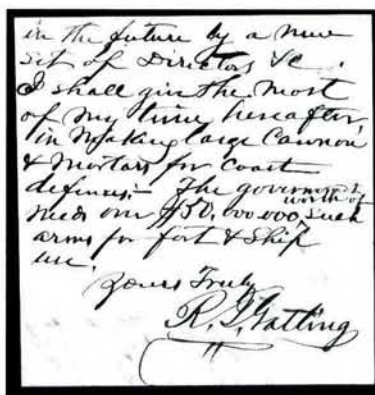 in the future by a new
set of Directors &c.
I shall give the most
of my time hereafter,
in making large Cannon
& Mortars for coast
defenses:- The government
needs over $50,000,000, worth of such
arms for fort & ship
use.
Yours Truly
R. J. Gatling